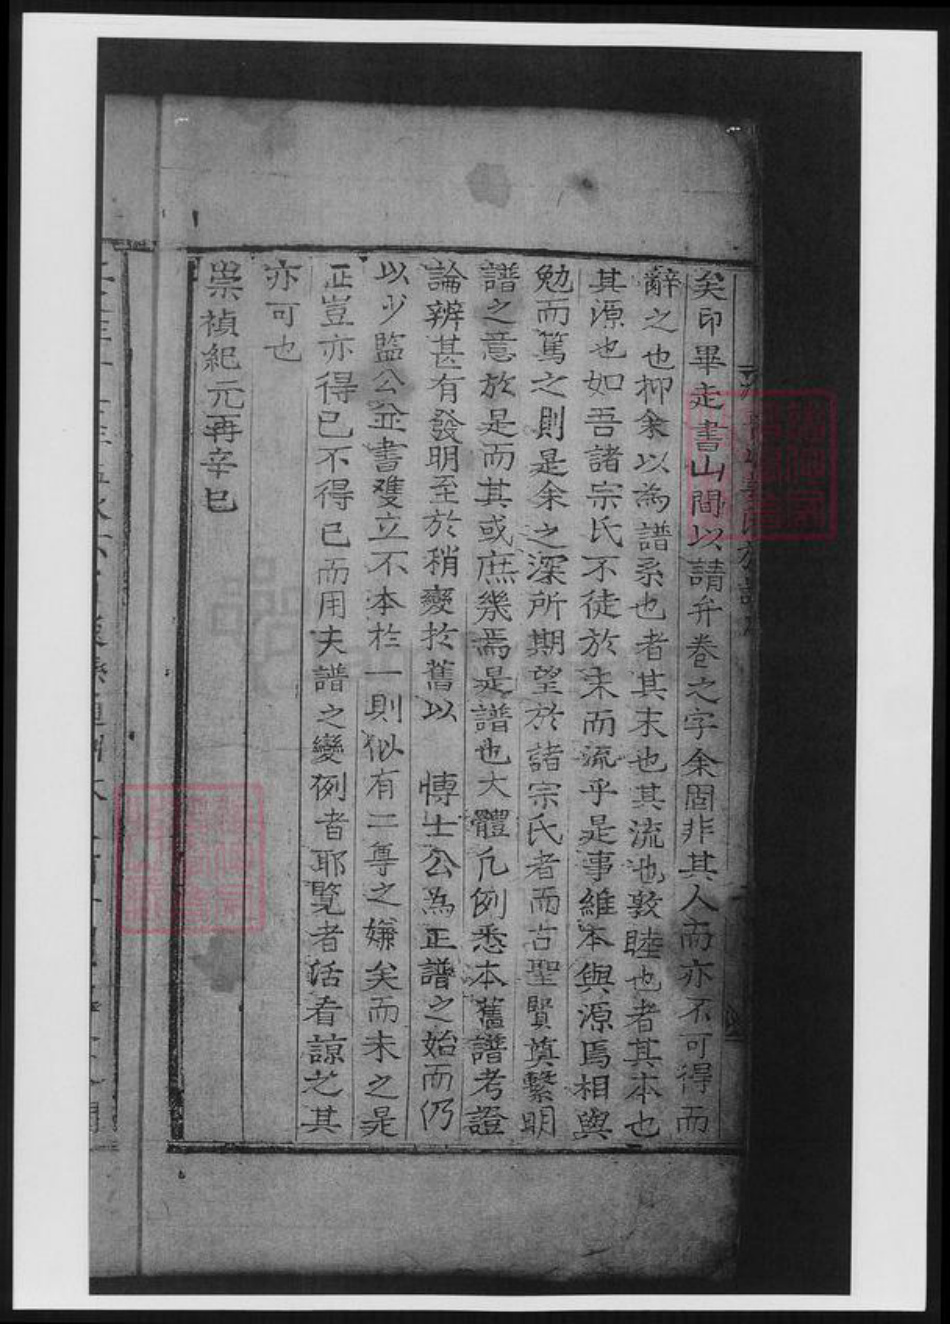 矣印畢走書山間以請弁卷之字余固非其人而亦不可得而
辭之也抑余以為譜系也者其末也其流也敦睦也者其本也
其源也如吾諸宗氏不徒於末而流乎是事維本與源焉相與
勉而篤之則是余之深所期望於諸宗氏者而古聖賢奠繫明
譜之意於是而其或庶幾焉是譜也大體凡例悉本舊譜考證
論辨甚有發明至於稍變於舊以 博士公為正譜之始而仍
以少監公並書雙立不本於一則似有二尊之嫌矣而未之是
正豈亦得已不得已而用夫譜之變例者耶覽者活看諒之其
亦可也
崇禎紀元再辛巳